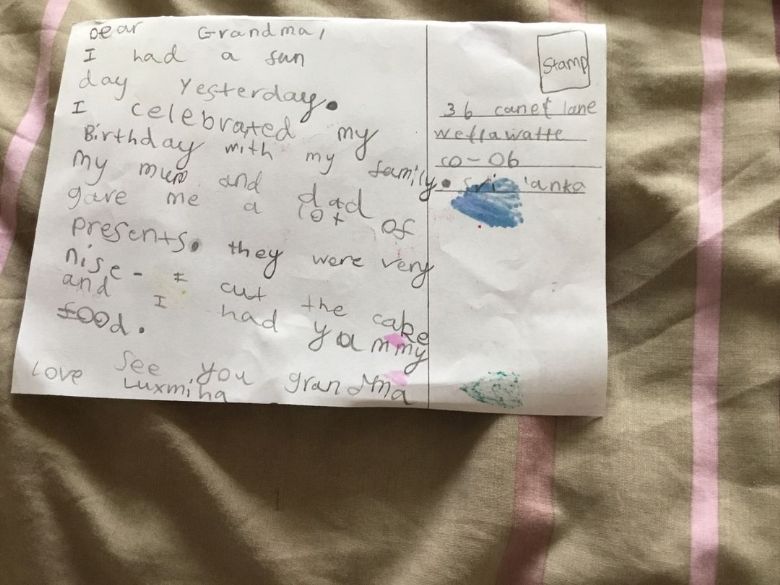 Dear Grandma,
I had a fun
day Yesterday.
I celebrated my
Birthday with my family.
My mum and dad
gave me a lot of
presents. they were very
nise - I cut the cake
and I had yammy
food.
see you grandma
Love Luxmiha
Stamp
36 canel lane
Wellawatte
co-06
sri lanka